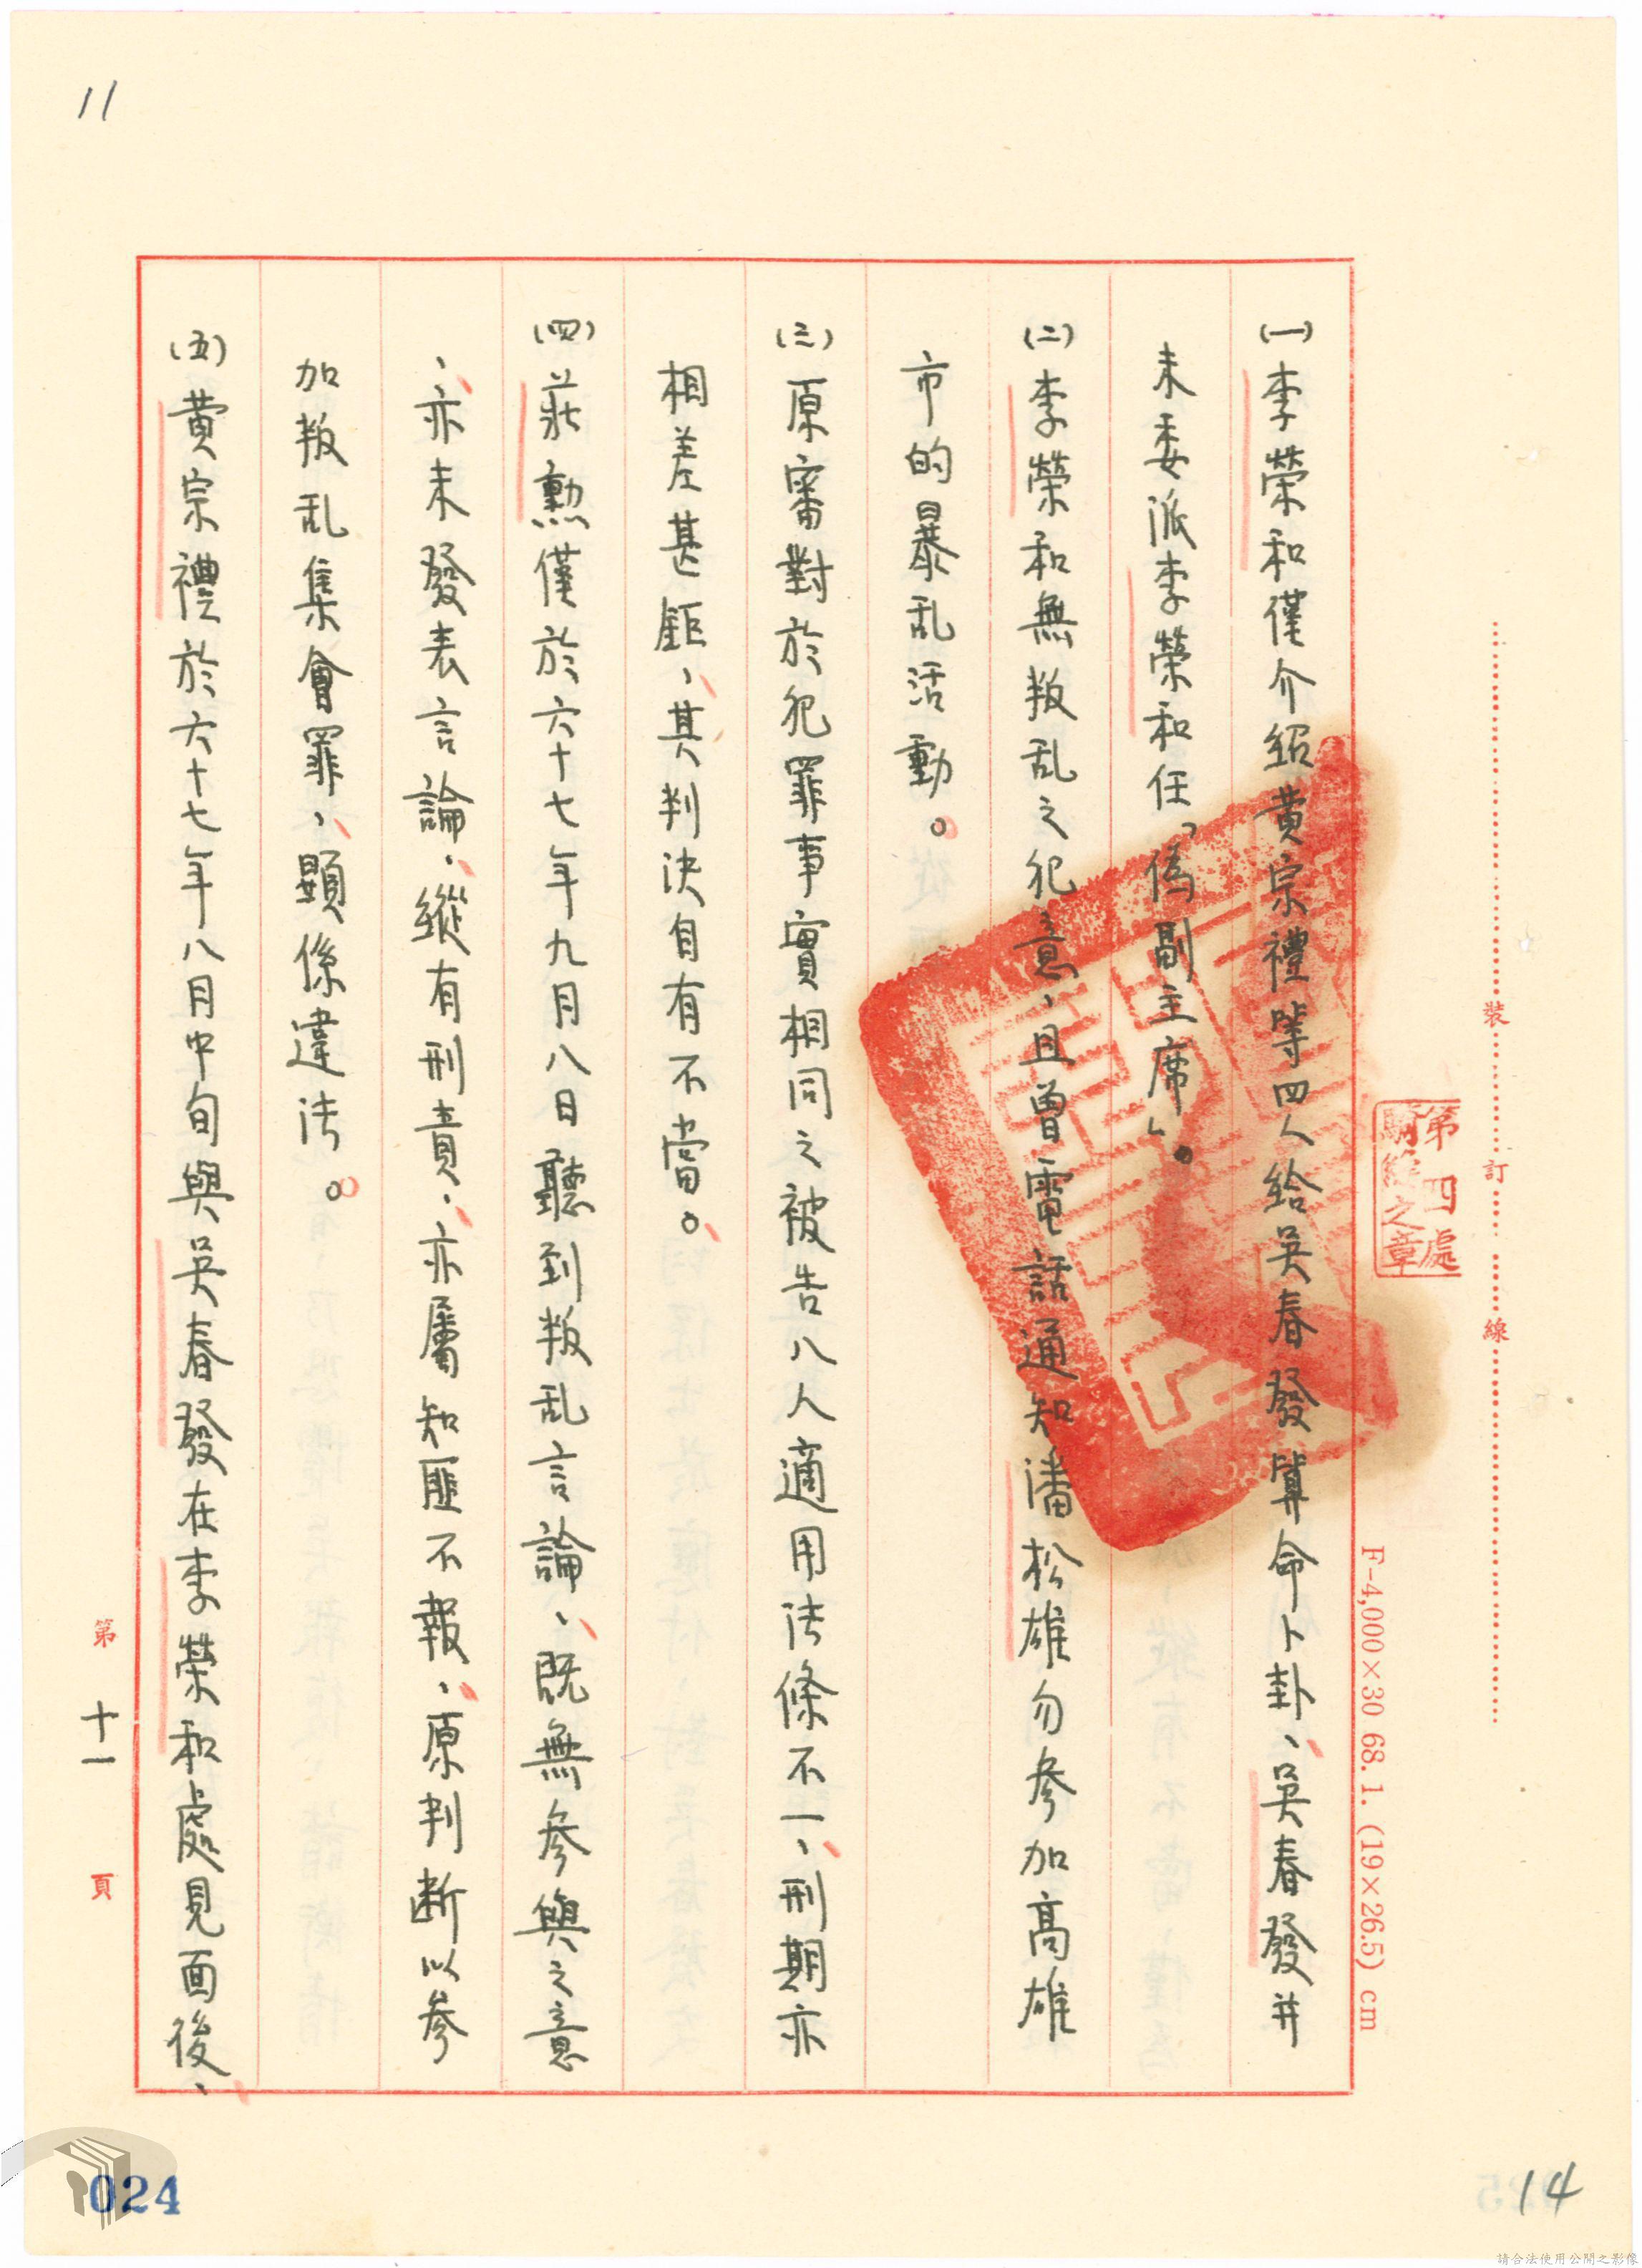 11
(一)李榮和僅介紹黄宗禮等四人給吳春發算命卜卦、吳春發並
未委派李榮和任「偽副主席」。
(二)李榮和無叛乱之犯意、且曾電話通知潘松雄勿參加高雄
市的暴乱活動。
(三)原審對於犯罪事實相同之被告八人適用法條不一、刑期亦
相差甚鉅、其判決自有不當。
(四)莊勲僅於六十七年九月八日聽到叛乱言論、既無參與之意
、亦未發表言論、縱有刑責、亦屬知匪不報、原判断以參
加叛乱集會罪、顯係違法。
(五)黄宗禮於六十七年八月中旬與吳春發在李榮和處見面後、
裝
訂
線
第四處
騎縫之章
F-4,000×30 68.1. (19×26.5) cm
第 十一 頁
024
14
請合法使用公開之影像